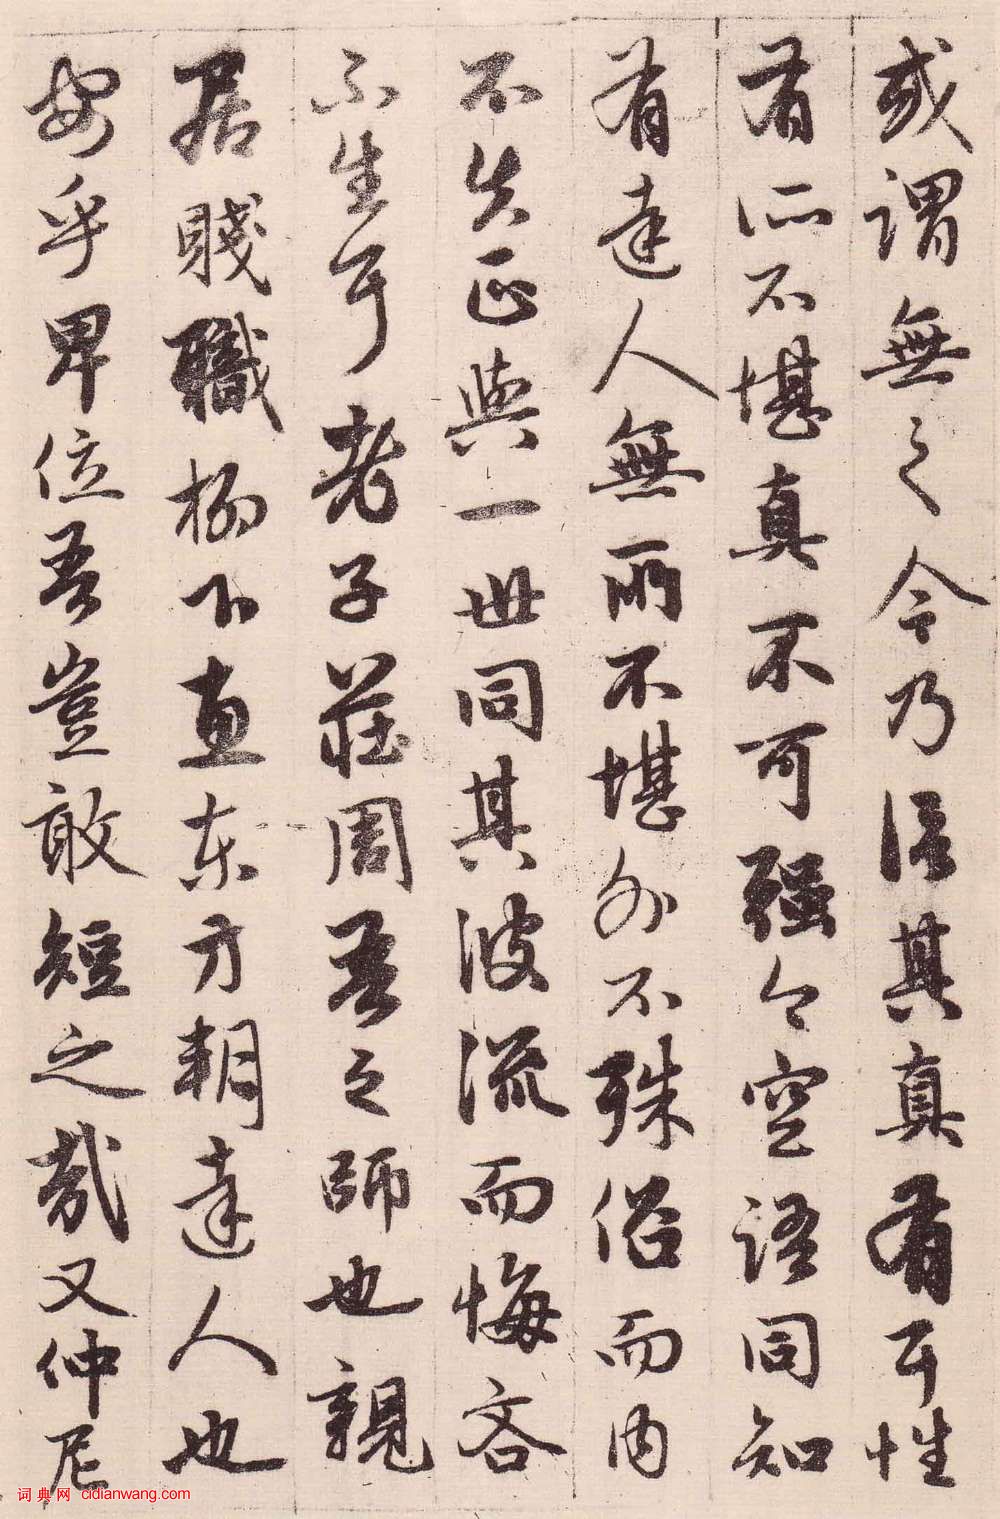 或謂無之今乃信其真有耳性
有所不堪真不可强今空語同知
有達人無所不堪外不殊俗而内
不失正與一世同其波流而悔吝
不生耳老子莊周吾之師也親
居賤職柳下惠東方朔達人也
安乎卑位吾豈敢短之哉又仲尼
词典网 cidianwang.com